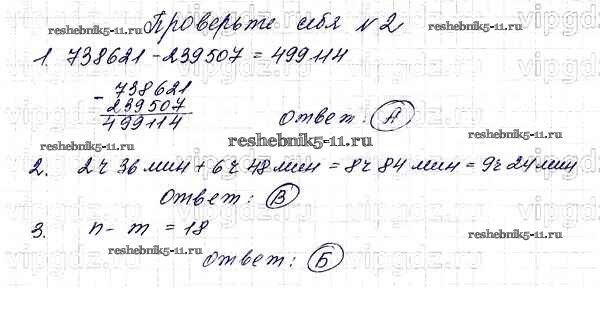 Проверьте себя №2
reshebnik5-11.ru reshebnik5-11.ru
1. 738621 - 239507 = 499114
- 738621
239507
499114
ответ: А
reshebnik5-11.ru
reshebnik5-11.ru
2. 2ч 36мин + 6ч 48мин = 8ч 84мин = 9ч 24мин
ответ: В
reshebnik5-11.ru
3. n - m = 18
reshebnik5-11.ru
ответ: Б
reshebnik5-11.ru
vipgdz.ru